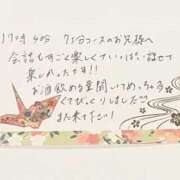 17時40分 75分コースのお兄様へ
会話もすごく楽しくていっぱい話せて
楽しかったです!!
お酒飲める量聞いてめっちゃ
びっくりしましただ
また来て下さい!